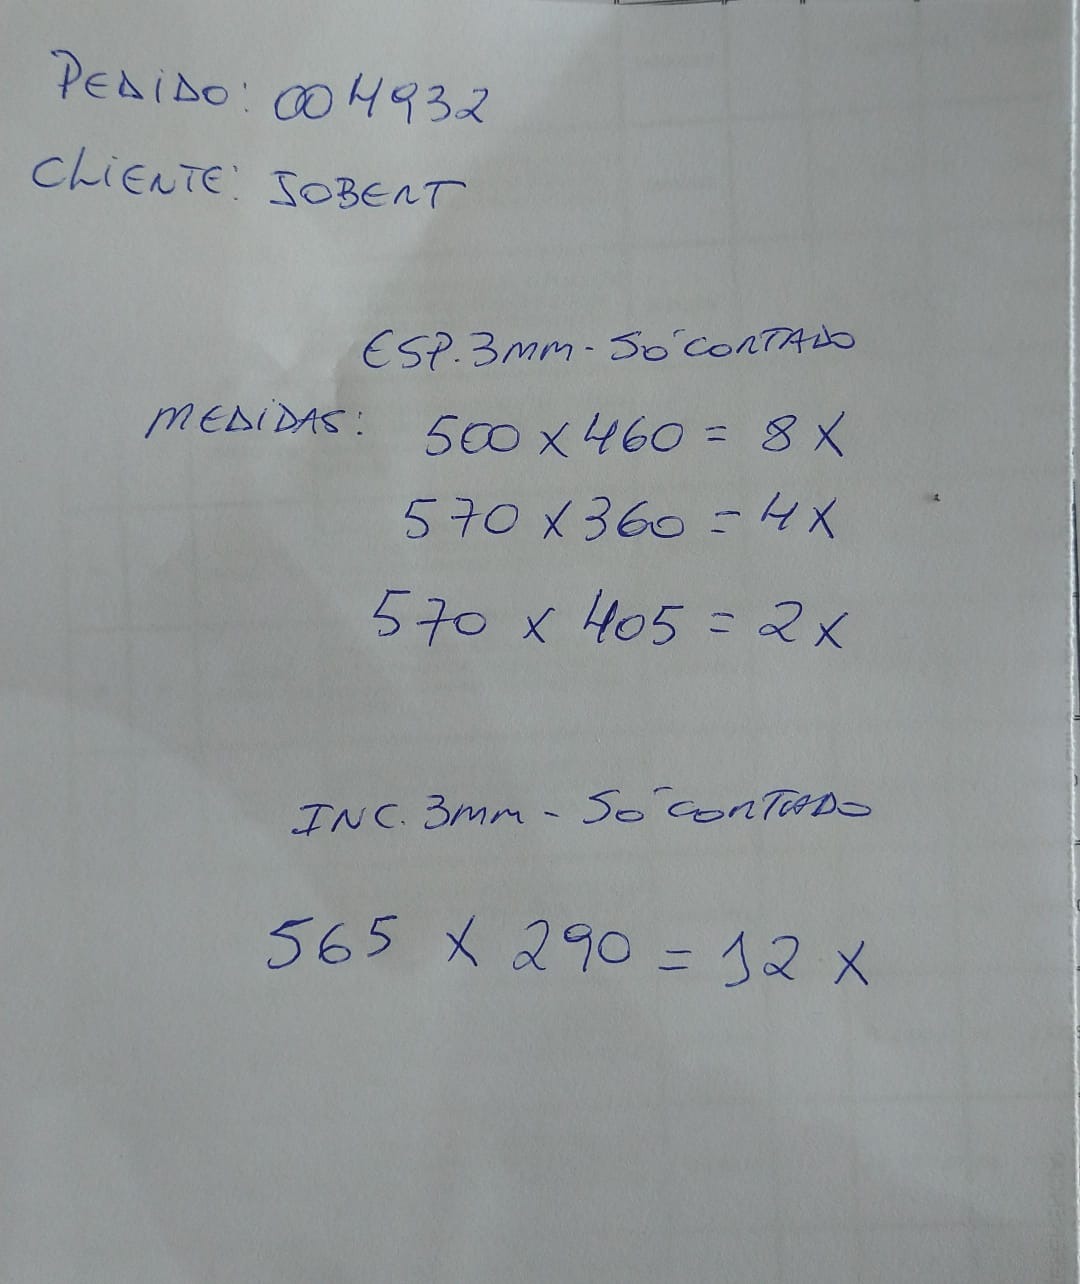 PEDIDO: 004932
CLIENTE: JOBERT
ESP. 3mm - SÓ CORTADO
MEDIDAS: 500 X 460 = 8 X
570 X 360 = 4 X
570 X 405 = 2 X
INC. 3mm - SÓ CORTADO
565 X 290 = 12 X